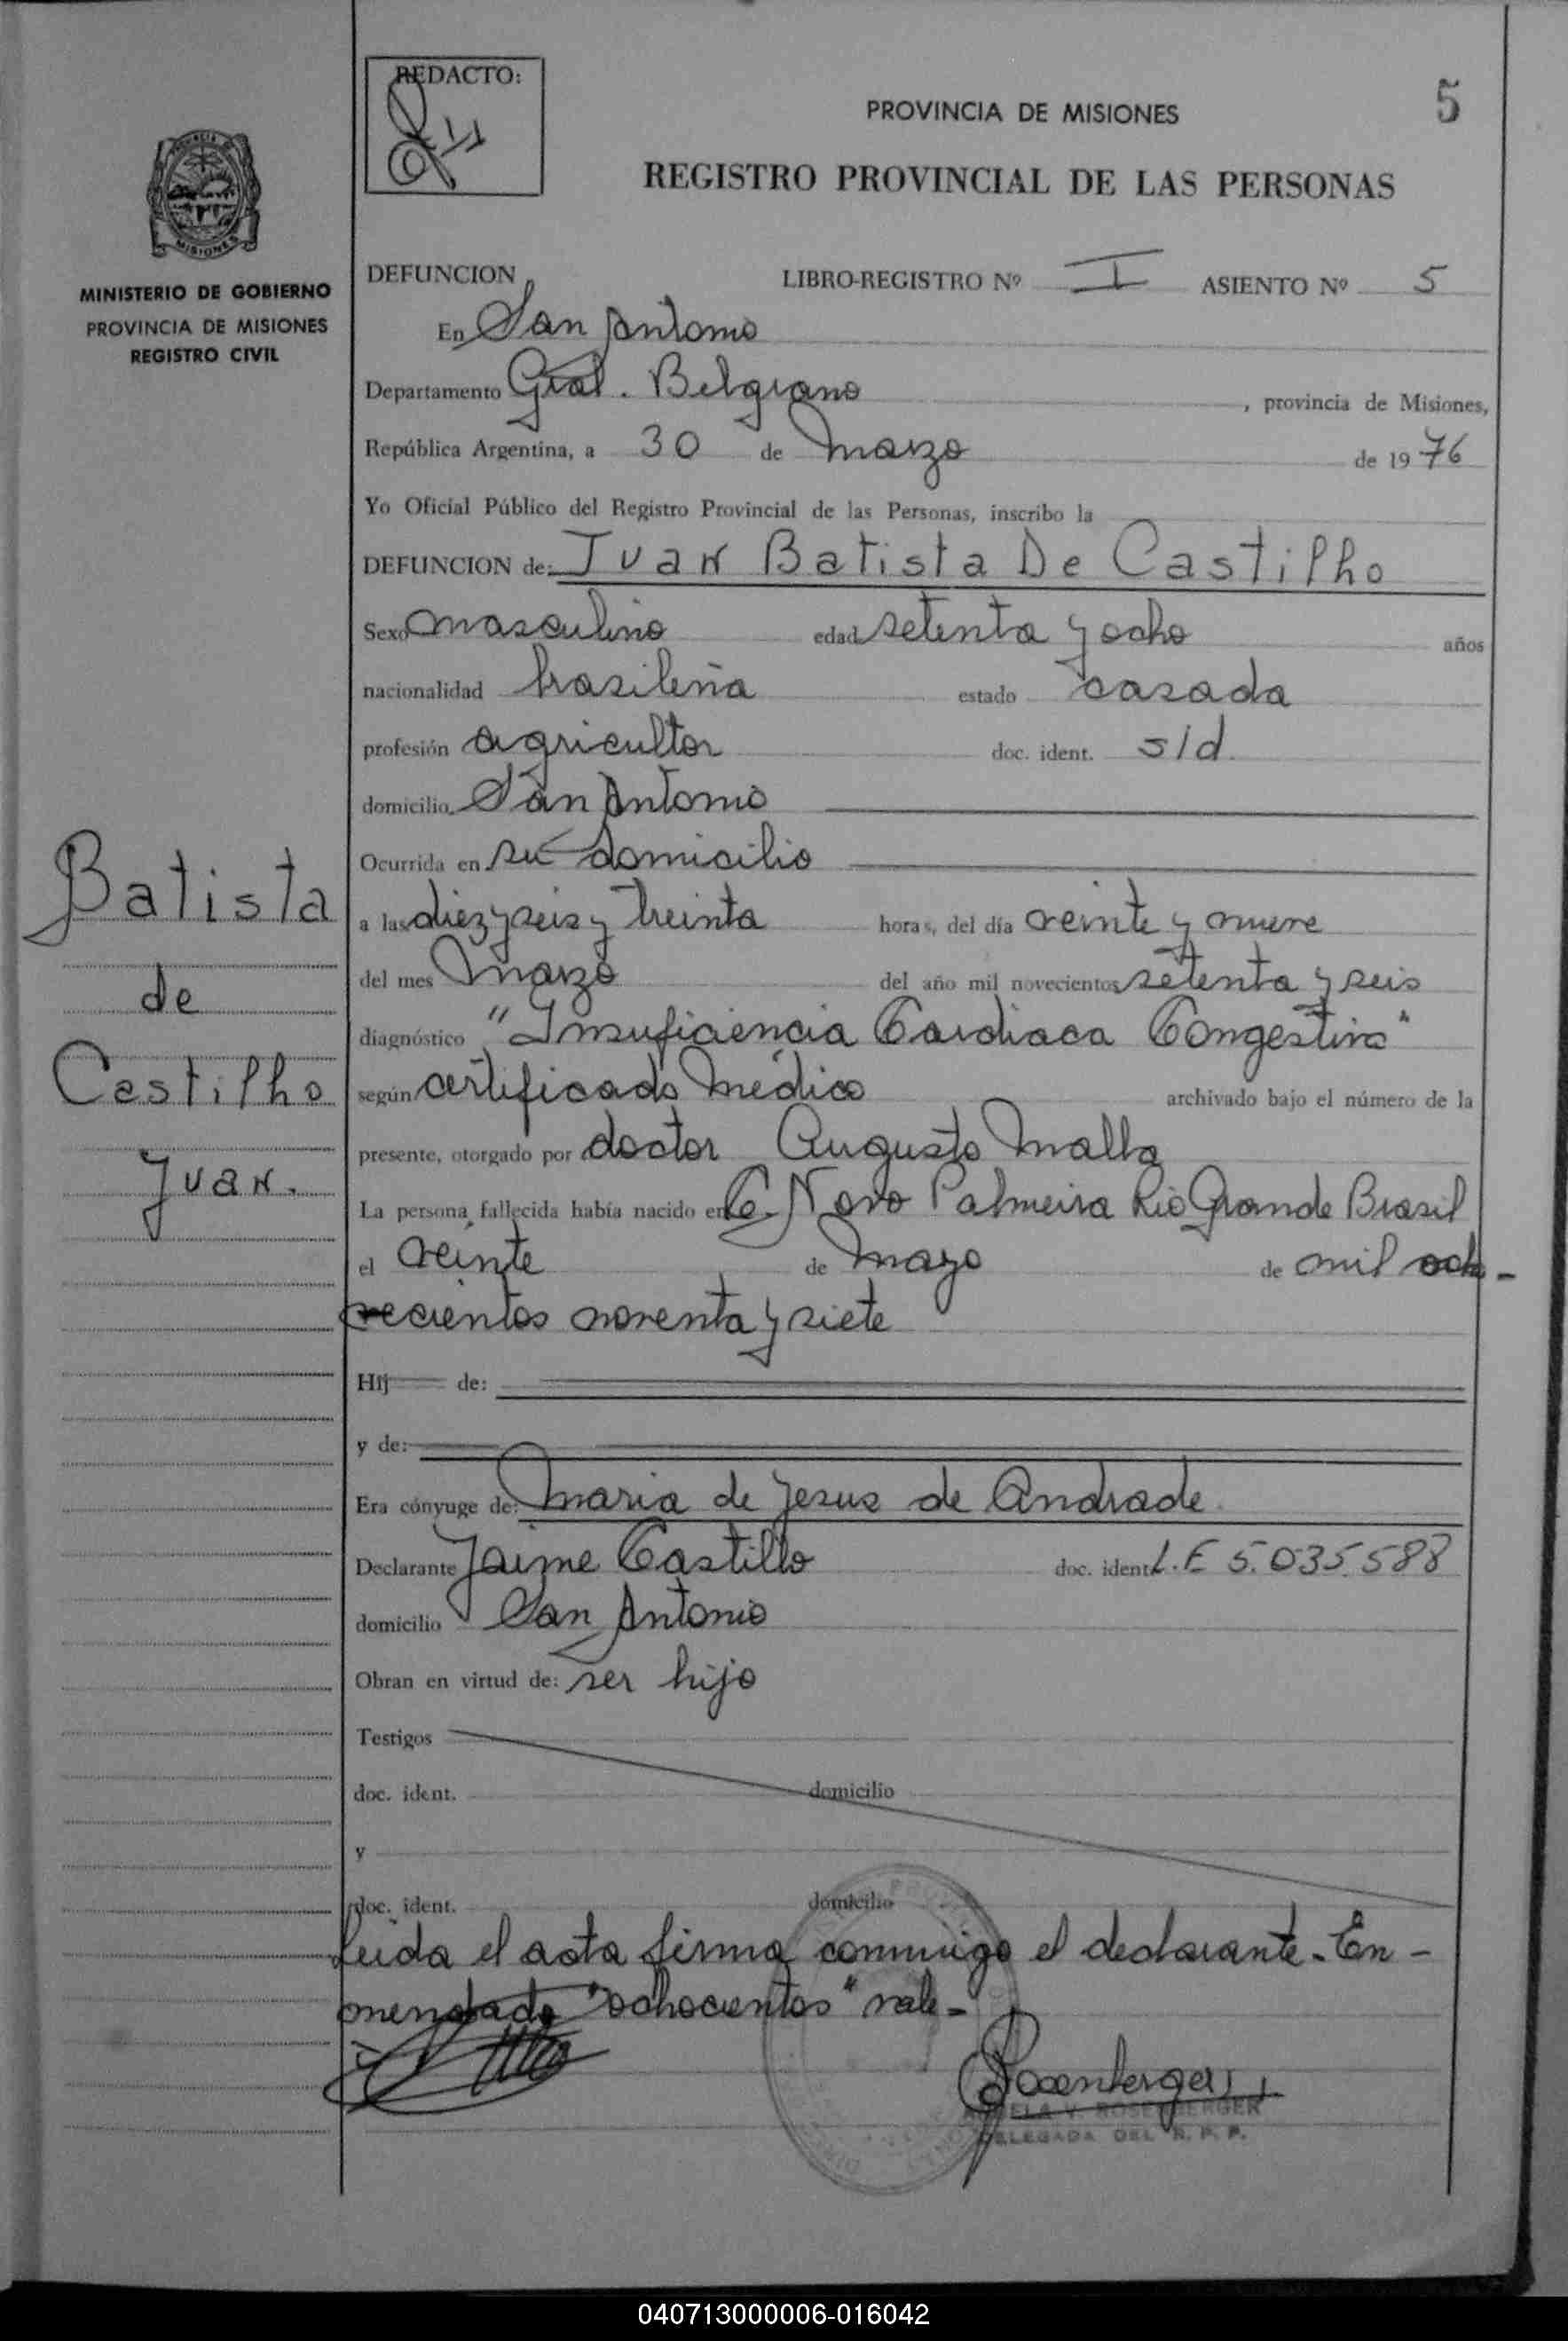 REDACTO:
PROVINCIA DE MISIONES
5
REGISTRO PROVINCIAL DE LAS PERSONAS
MISIONES
MINISTERIO DE GOBIERNO
PROVINCIA DE MISIONES
REGISTRO CIVIL
DEFUNCION LIBRO-REGISTRO Nº I ASIENTO Nº 5
En San Antonio
Departamento Gral. Belgrano, provincia de Misiones,
República Argentina, a 30 de marzo de 1976
Yo Oficial Público del Registro Provincial de las Personas, inscribo la
DEFUNCION de: Juan Batista De Castilho
Sexo masculino edad setenta y ocho años
nacionalidad brasileña estado casada
profesión agricultor doc. ident. s/d.
domicilio San Antonio
Ocurrida en su domicilio
a las diez y seis y treinta horas, del día veinte y nueve
del mes marzo del año mil novecientos setenta y seis
diagnóstico "Insuficiencia Cardiaca Congestiva"
según certificado médico archivado bajo el número de la
presente, otorgado por doctor Augusto Malla
La persona fallecida había nacido en C. Novo Palmeira Rio Grande Brasil
el veinte de mayo de mil ocho-
cientos noventa y siete
Hij de:
y de:
Era cónyuge de: Maria de Jesus de Andrade
Declarante Jaime Castillo doc. ident. L.E 5.035.588
domicilio San Antonio
Obran en virtud de: ser hijo
Testigos
doc. ident. domicilio
y
doc. ident. domicilio
Leida el acta firma conmigo el declarante. En-
mendado "ochocientos" vale-
Rosenberger
V. ROSENBERGER
DELEGADA DEL R. P. P.
Batista
de
Castilho
Juan.
040713000006-016042